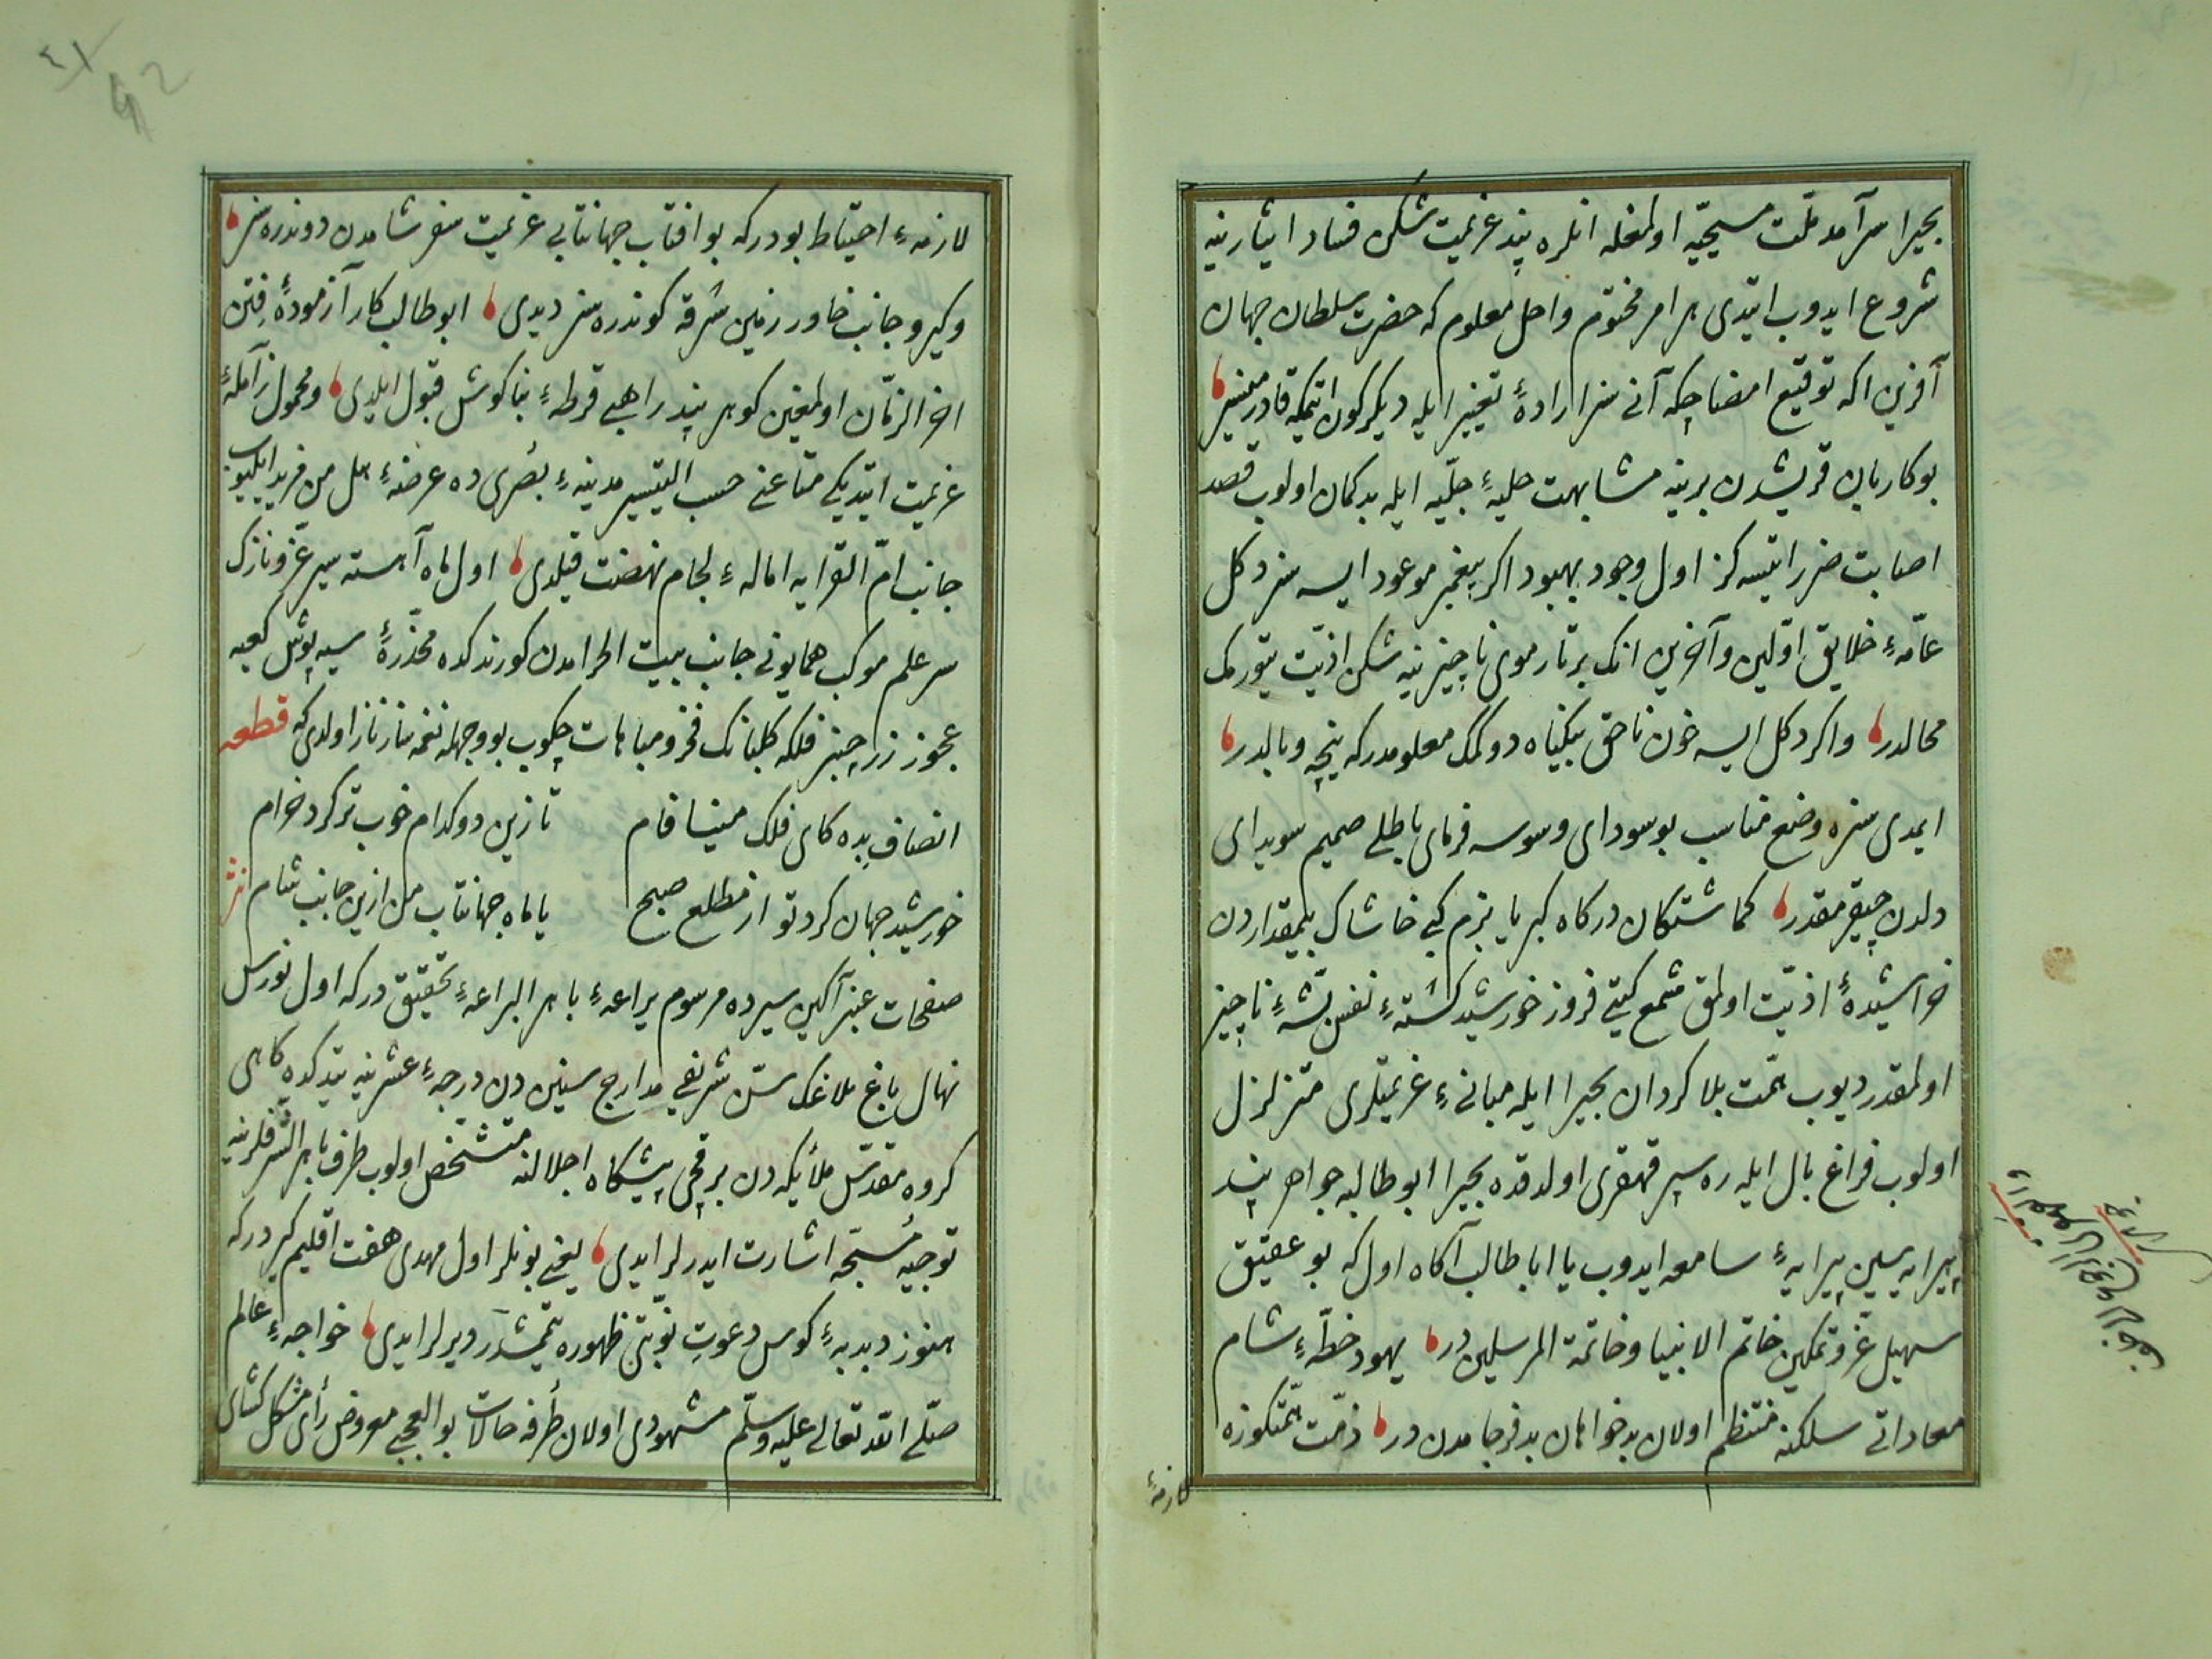 بحیرا سرآمد ملّت مسیحیّه اولمغله انلره پند عزیمت شکن فساد ایثارینه
شروع ایدوب ایتدی هر امر مختوم واجل معلوم که حضرت سلطان جهان
آفرین اکه توقیع امضا چکه آنی سزار ارادهٔ تغییر ایله دیکرکون ایتمکه قادر میسز
بو کاربان قریشدن برینه مشابهت حلیهٔ جلّیه ایله بدکمان اولوب قصد
اصابت ضرر ایتسه کز اول وجود بهبود اکر پیغمبر موعود ایسه سز دکل
عامّهٔ خلایق اوّلین وآخرین انک بر تار موی ناچیزینه شکن اذیّت یتورمک
محالدر واکر دکل ایسه خون ناحق بیکناه دوکمک معلومدرکه نیجه وبالدر
ایمدی سزه وضع مناسب بو سودای وسوسه فرمای باطلی صمیم سویدای
دلدن چیقرمقدر کماشتکان درکاه کبریا بزم کبی خاشاک بیمقداردن
خراشیدهٔ اذیّت اولمق شمع کیتی فروز خورشید کشتهٔ نفس پشهٔ ناچیز
اولمقدر دیوب همّت بلا کردان بحیرا ایله مبانیٔ عزیمتلری متزلزل
اولوب فراغ بال ایله ره سپر قهقری اولدقده بحیرا ابو طالبه جواهر پند
پیرایه سین پیرایهٔ سامعه ایدوب یا ابا طالب آکاه اول که بو عقیق
سهیل عزّ وتمکین خاتم الانبیا وخاتمة المرسلین در یهود خطّهٔ شام
معاداتی سلکنه منتظم اولان بدخواهان بد فرجامدن در ذمّت همّتکوزه
لازمهٔ
لازمهٔ احتیاط بودرکه بو افتاب جهانتابی عزیمت سفر شامدن دوندره سز
وکیرو جانب خاور زمین شرقه کوندره سز دیدی ابو طالب کار آزمودهٔ فتن
اخر الزمان اولمغین کوهر پند راهبی قرطهٔ بناکوش قبول ایلدی ومحمول زآملهٔ
عزیمت ایتدیکی متاعنی حسب التیسیر مدینهٔ بصری ده عرضهٔ هل من مزید ایلیوب
جانب امّ القرایه امالهٔ لجام نهضت قیلدی اول ماه آهسته سیر عزّ ونازک
سر علم موکب همایونی جانب بیت الحرامدن کورندکده مخدّرهٔ سیه پوش کعبه
عجوز زر چنبر فلکه کلبانک فخر ومباهات چکوب بو وجهله نغمه ساز ناز اولدی که قطعه
انصاف بده کای فلک مینا فام تا زین دو کدام خوب تر کرد خرام
خورشید جهان کرد تو از مطلع صبح یا ماه جهانتاب من از ین جانب شام نثر
صفحات عنبر آکین سیرده مرسوم یراعهٔ باهر البراعهٔ تحقیق درکه اول نورس
نهال باغ بلاغک سنّ شریفی مدارج سنین دن درجهٔ عشرینه یتدکده کاهی
کروه مقدّس ملائکه دن بر قچی پیشکاه اجلالنه متشخّص اولوب طرف باهر الشرفلرینه
توجیه مسبّحه اشارت ایدرلر ایدی یعنی بونلر اول مهدی هفت اقلیم کیر درکه
هنوز دبدبهٔ کوس دعوت نوبتی ظهوره یتمشدر دیرلر ایدی خواجهٔ عالم
صلّی الله تعالی علیه وسلّم مشهودی اولان طرفه حالات بو العجبی معروض رأی مشکل کشای